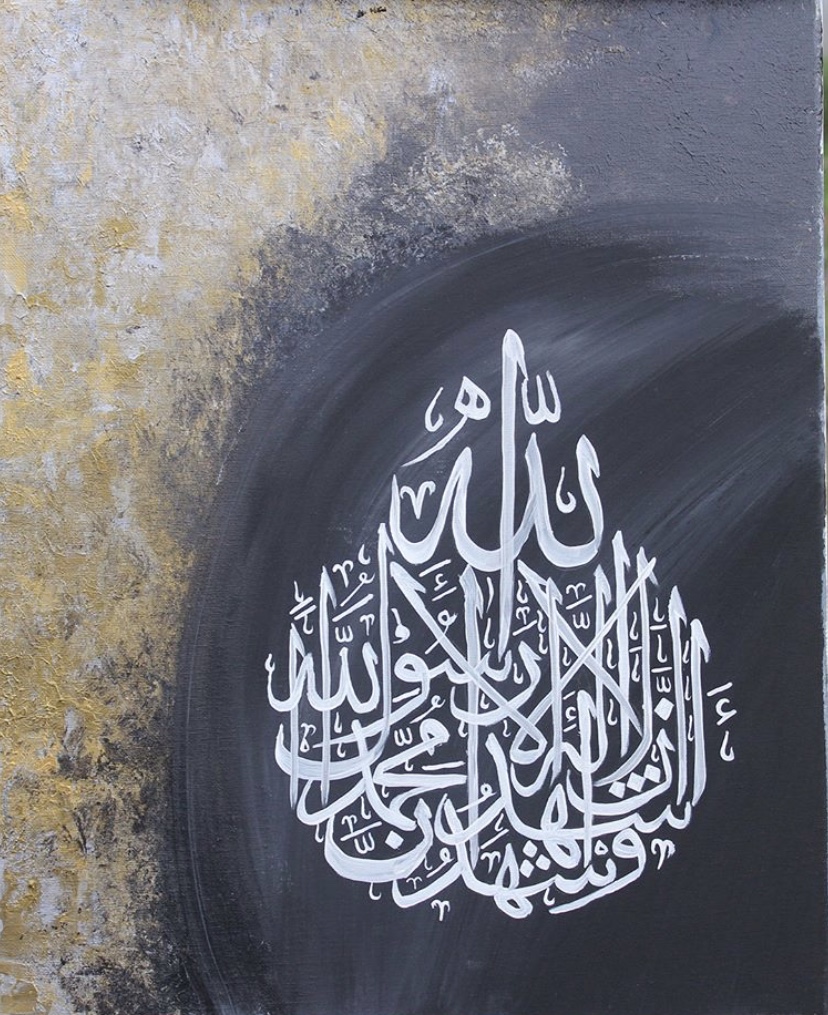 أشهد أن لا إله إلا الله وأشهد أن محمدا رسول الله